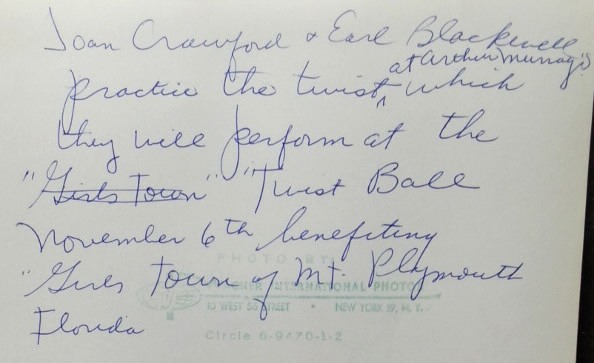 Joan Crawford & Earl Blackwell
at Arthur Murray's
practice the twist ^ which
they will perform at the
"Girls Town" "Twist Ball
November 6th benefiting
"Girls Town of Mt. Plymouth
Florida
PHOTO BY:
INTERNATIONAL PHOTO
10 WEST STREET • NEW YORK 19, N.Y.
Circle 6-9470-1-2